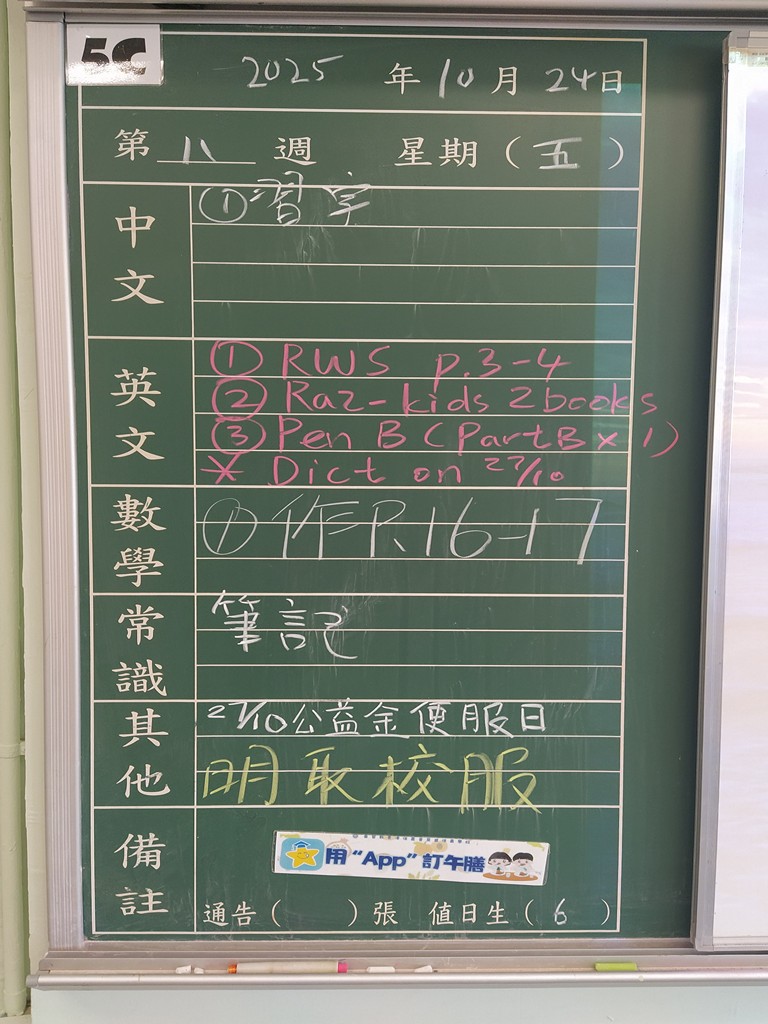 5C
2025 年 10 月 24 日
第 八 週 星期 ( 五 )
中文
① 習字
英文
① RWS p.3-4
② Raz-kids 2 books
③ Pen B (Part B x 1)
* Dict on 27/10
數學
① 作P.16-17
常識
筆記
其他
27/10公益金便服日
明取校服
備註
用“App”訂午膳
通告 ( ) 張 值日生 ( 6 )